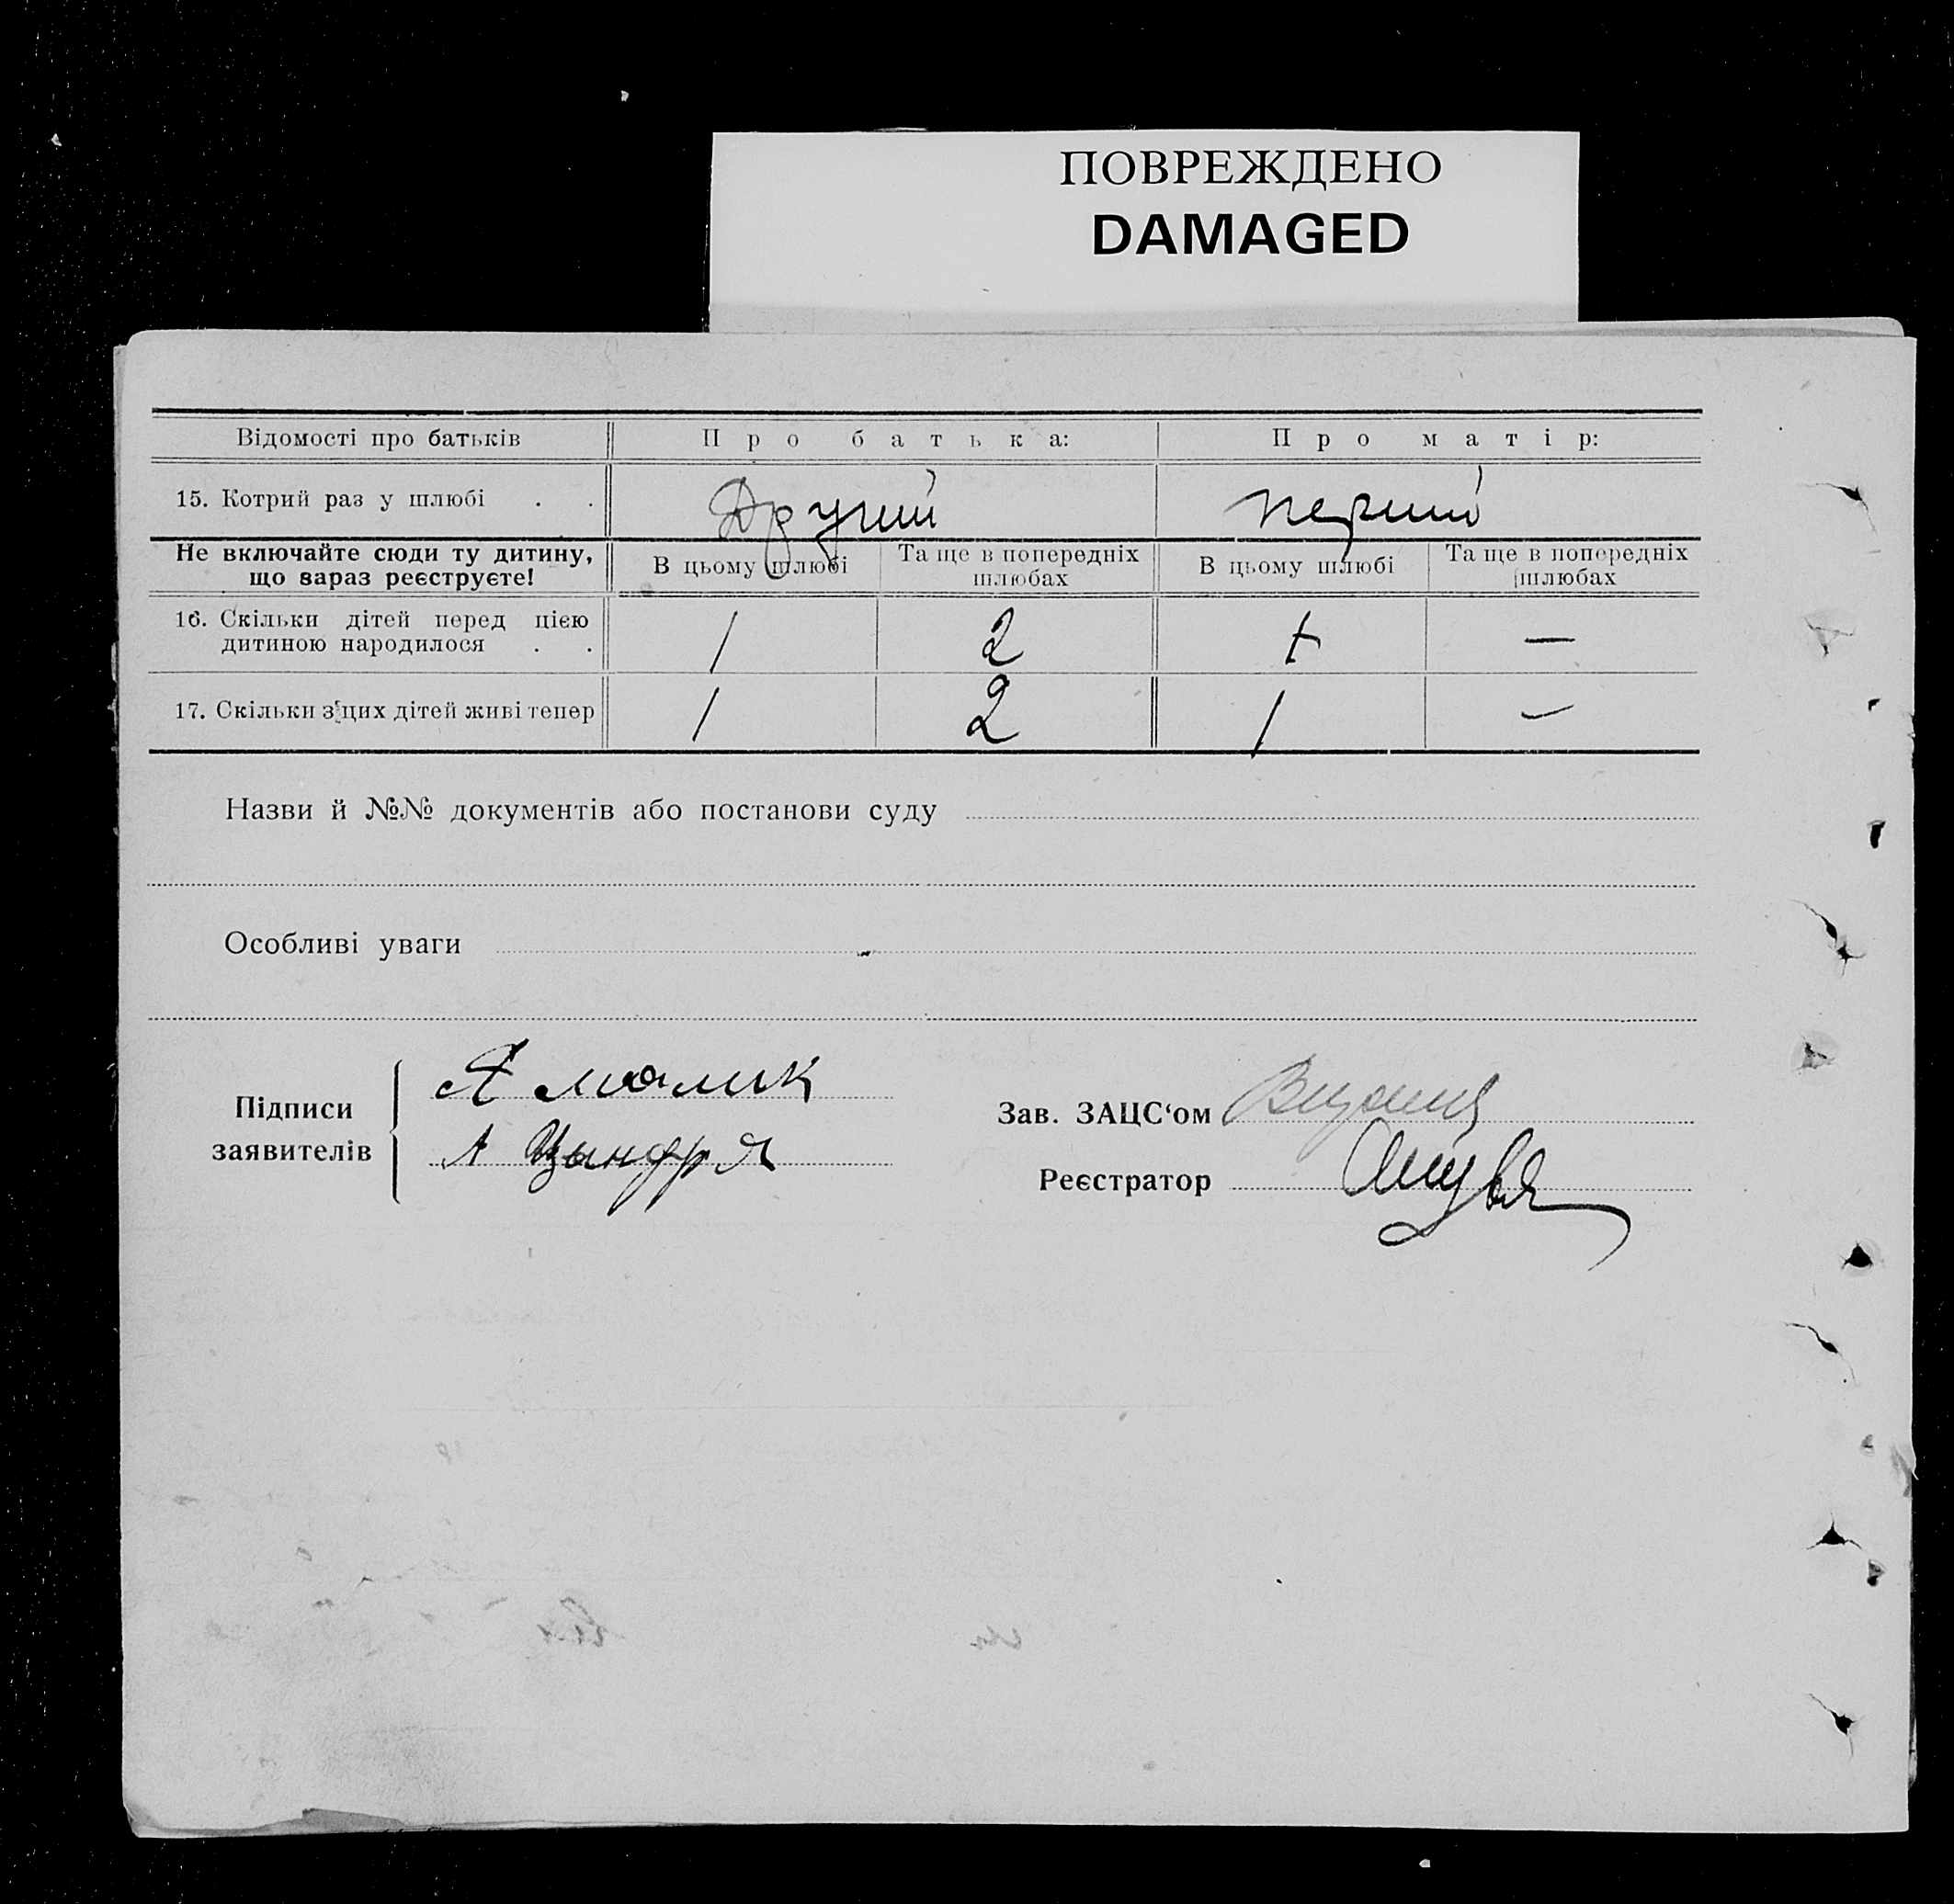 ПОВРЕЖДЕНО
DAMAGED
Відомості про батьків Про батька: Про матір:
15. Котрий раз у шлюбі . . Другий перший
Не включайте сюди ту дитину, що вараз реєструєте! В цьому шлюбі Та ще в попередніх шлюбах В цьому шлюбі Та ще в попередніх шлюбах
16. Скільки дітей перед цією
дитиною народилося . . / 2 + —
17. Скільки з цих дітей живі тепер / 2 / —
Назви й №№ документів або постанови суду
Особливі уваги
Підписи
заявителів
Я малик
А Цындря
Зав. ЗАЦС‘ом
Реєстратор